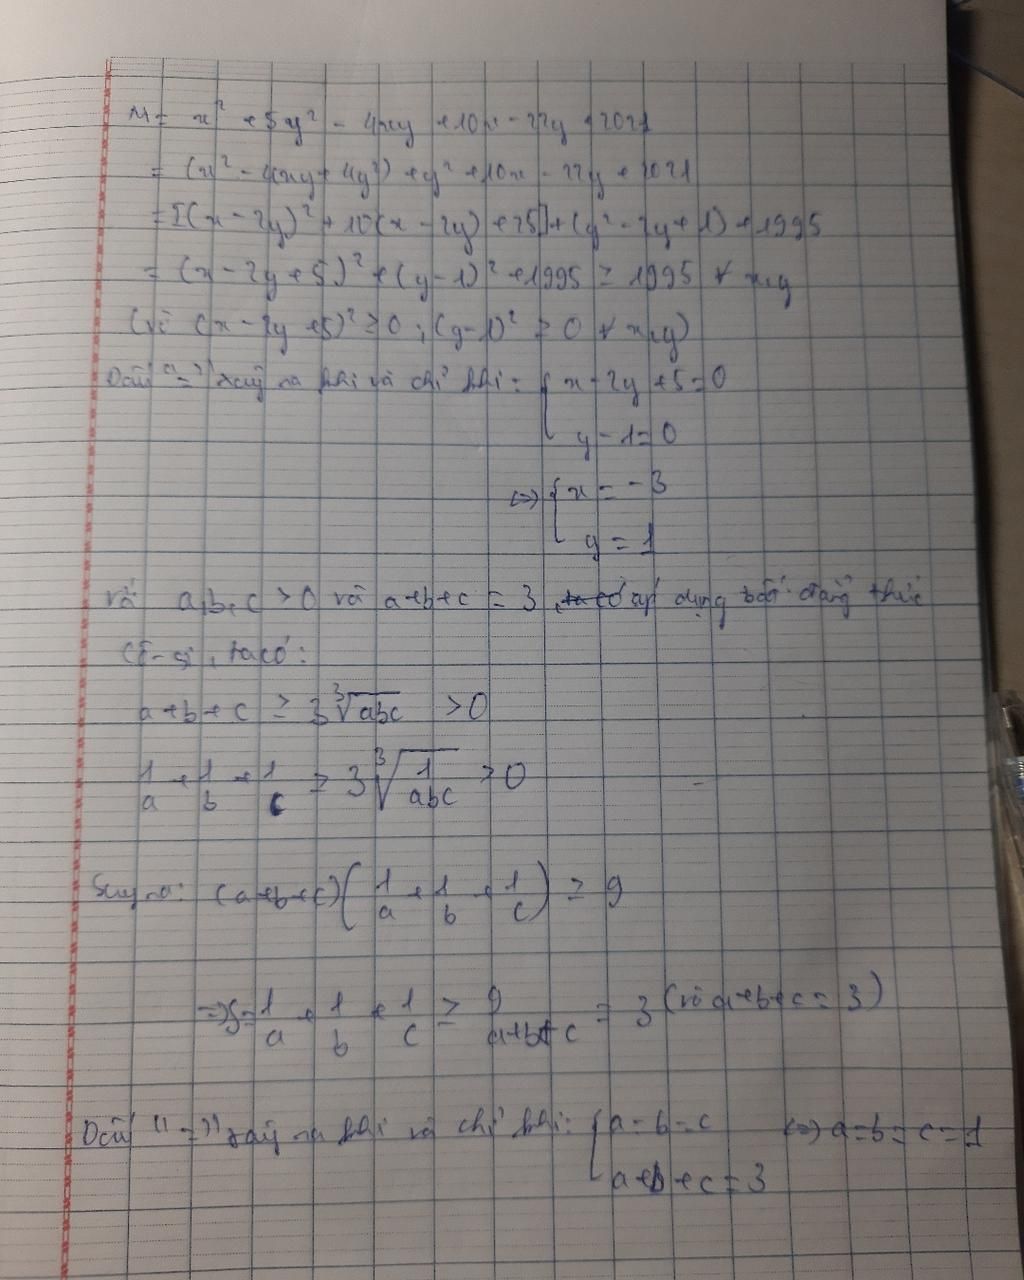 M = x² + 5y² - 4xy + 10x - 22y + 2021
= (x² - 4xy + 4y²) + y² + 10x - 22y + 2021
= [(x - 2y)² + 10(x - 2y) + 25] + (y² - 2y + 1) + 1995
= (x - 2y + 5)² + (y - 1)² + 1995 ≥ 1995 ∀ x,y
(Vì (x - 2y + 5)² ≥ 0 ; (y - 1)² ≥ 0 ∀ x,y)
Dấu "=" xảy ra khi và chỉ khi: { x - 2y + 5 = 0
y - 1 = 0
<=> { x = -3
y = 1
Với a,b,c > 0 và a+b+c = 3, áp dụng bất đẳng thức
Cô-si, ta có:
a + b + c ≥ 3∛abc > 0
1/a + 1/b + 1/c ≥ 3∛(1/abc) > 0
Suy ra: (a+b+c)(1/a + 1/b + 1/c) ≥ 9
=> S = 1/a + 1/b + 1/c ≥ 9/(a+b+c) = 3 (vì a+b+c = 3)
Dấu "=" xảy ra khi và chỉ khi: { a = b = c <=> a = b = c = 1
a + b + c = 3